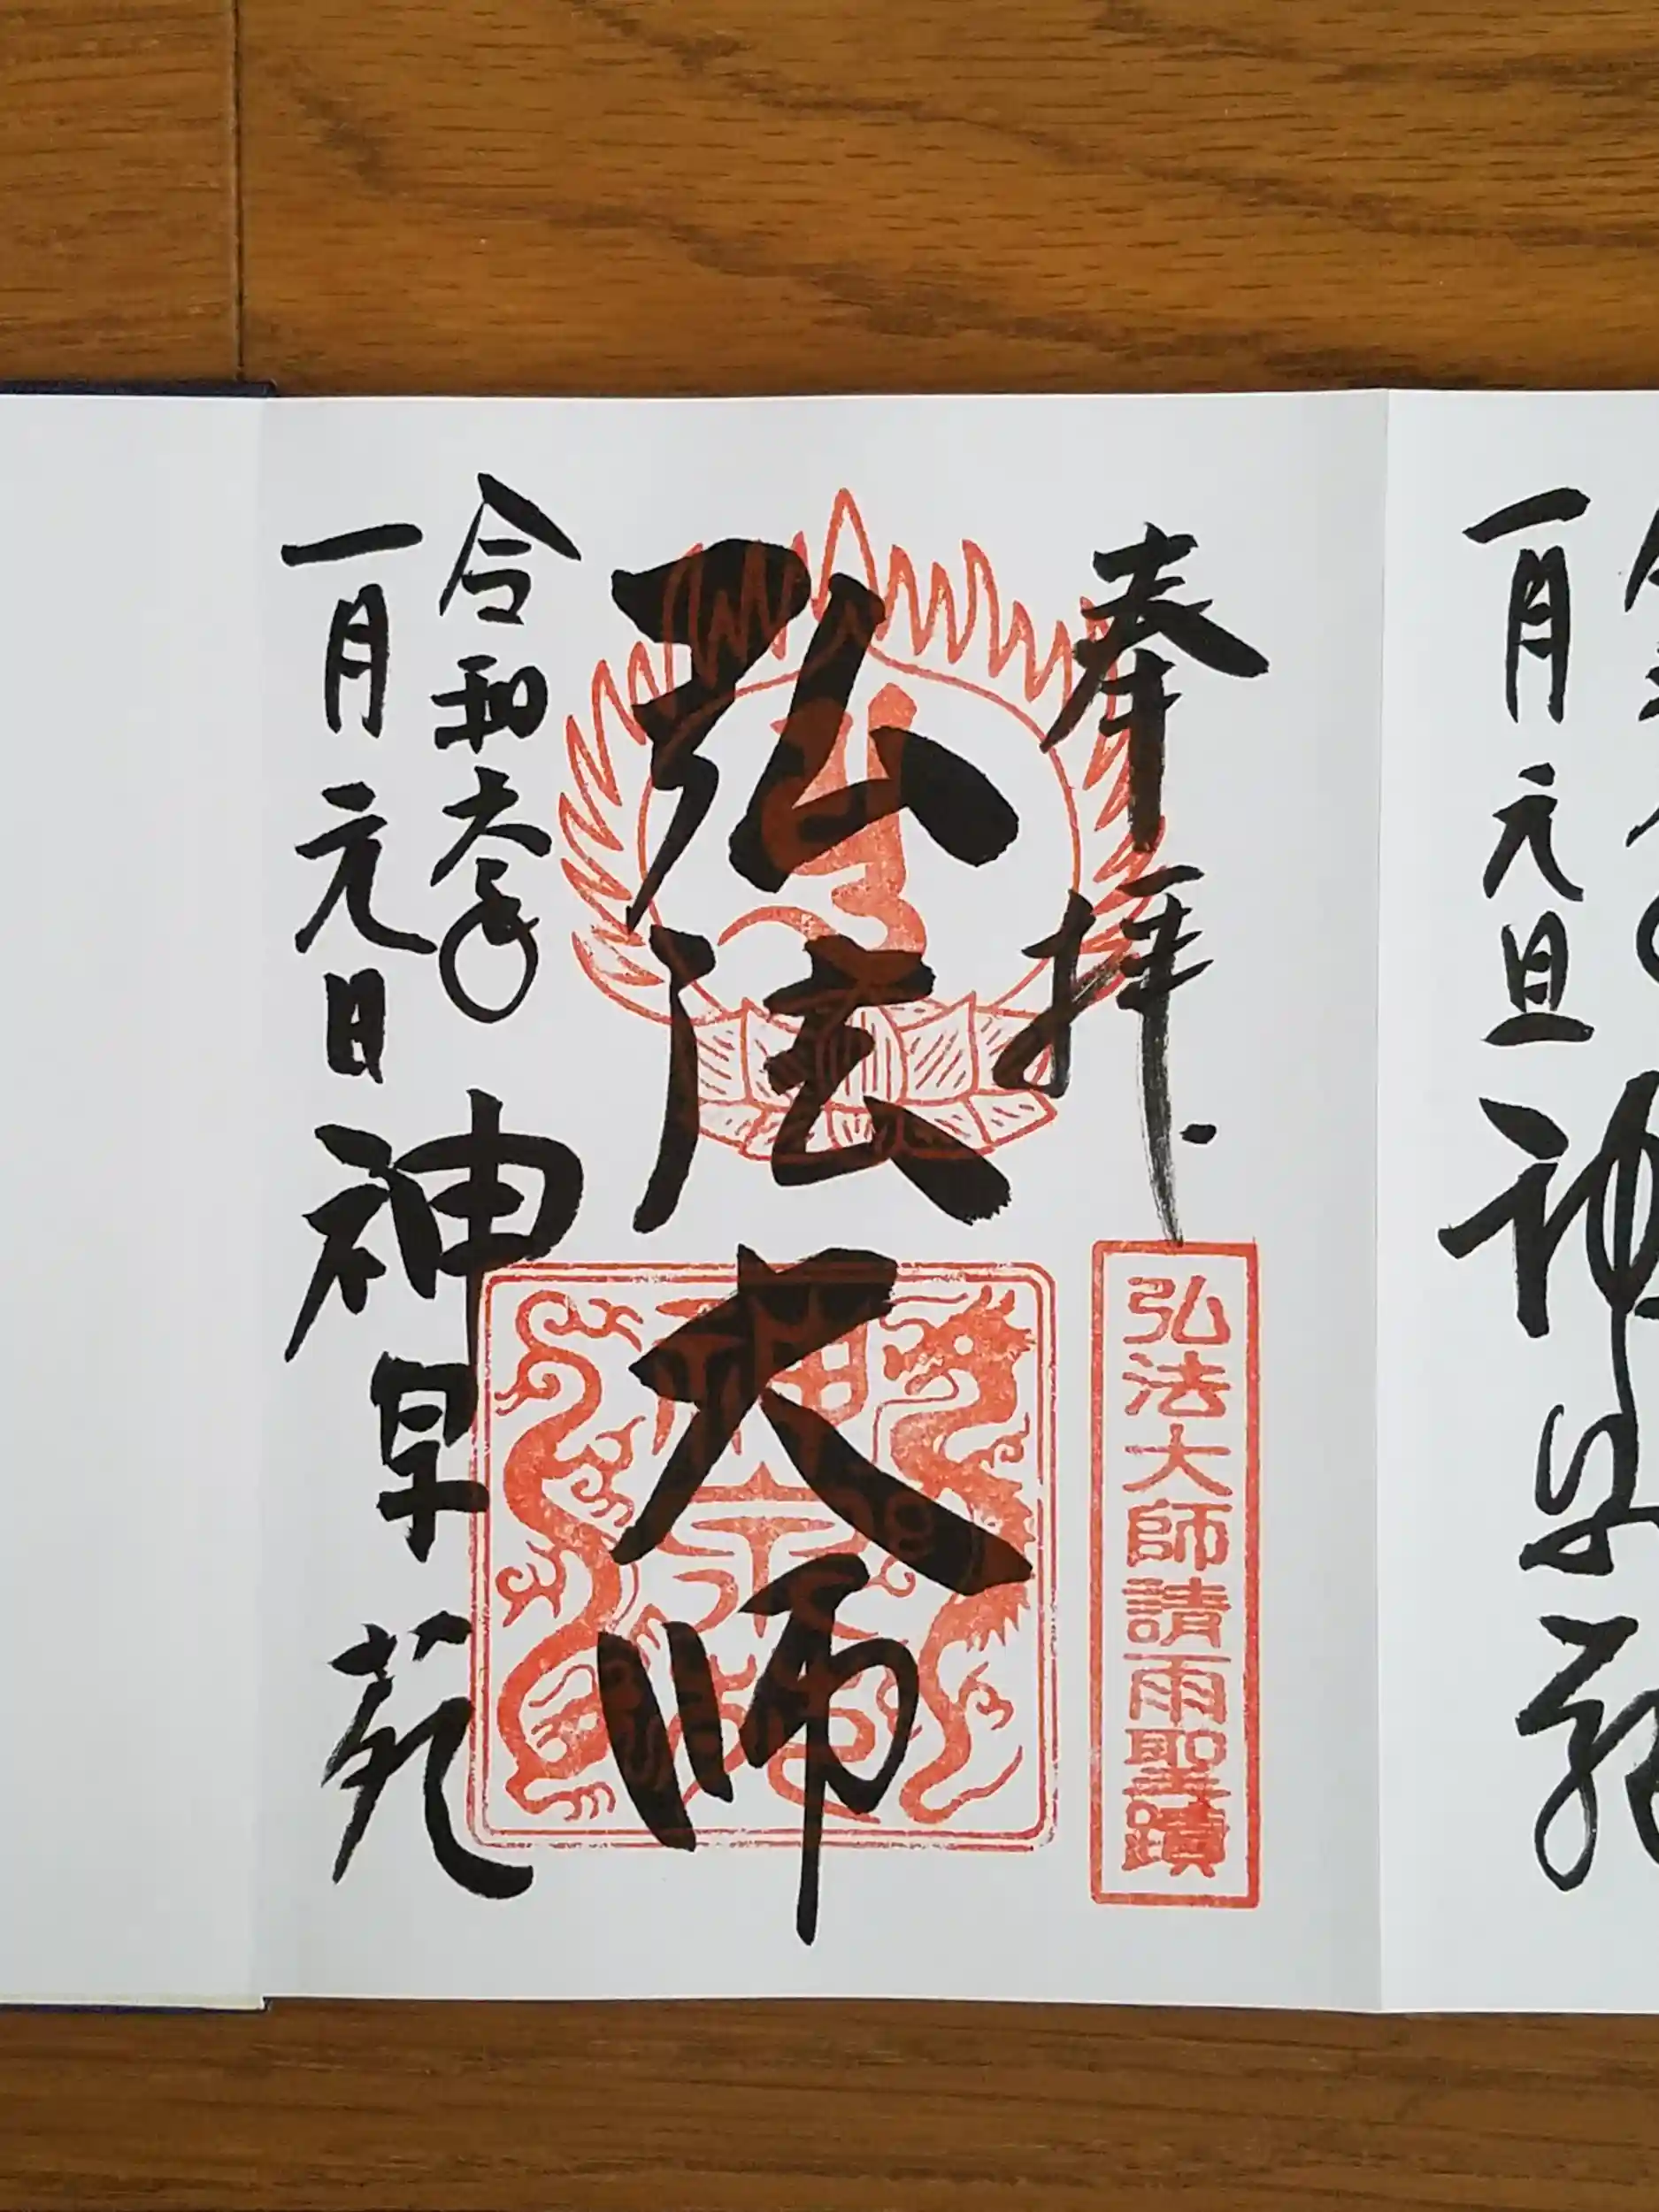 一月元旦 神泉苑
奉拝
弘法大師請雨聖蹟
弘法大師
令和六年
一月元日
神泉苑